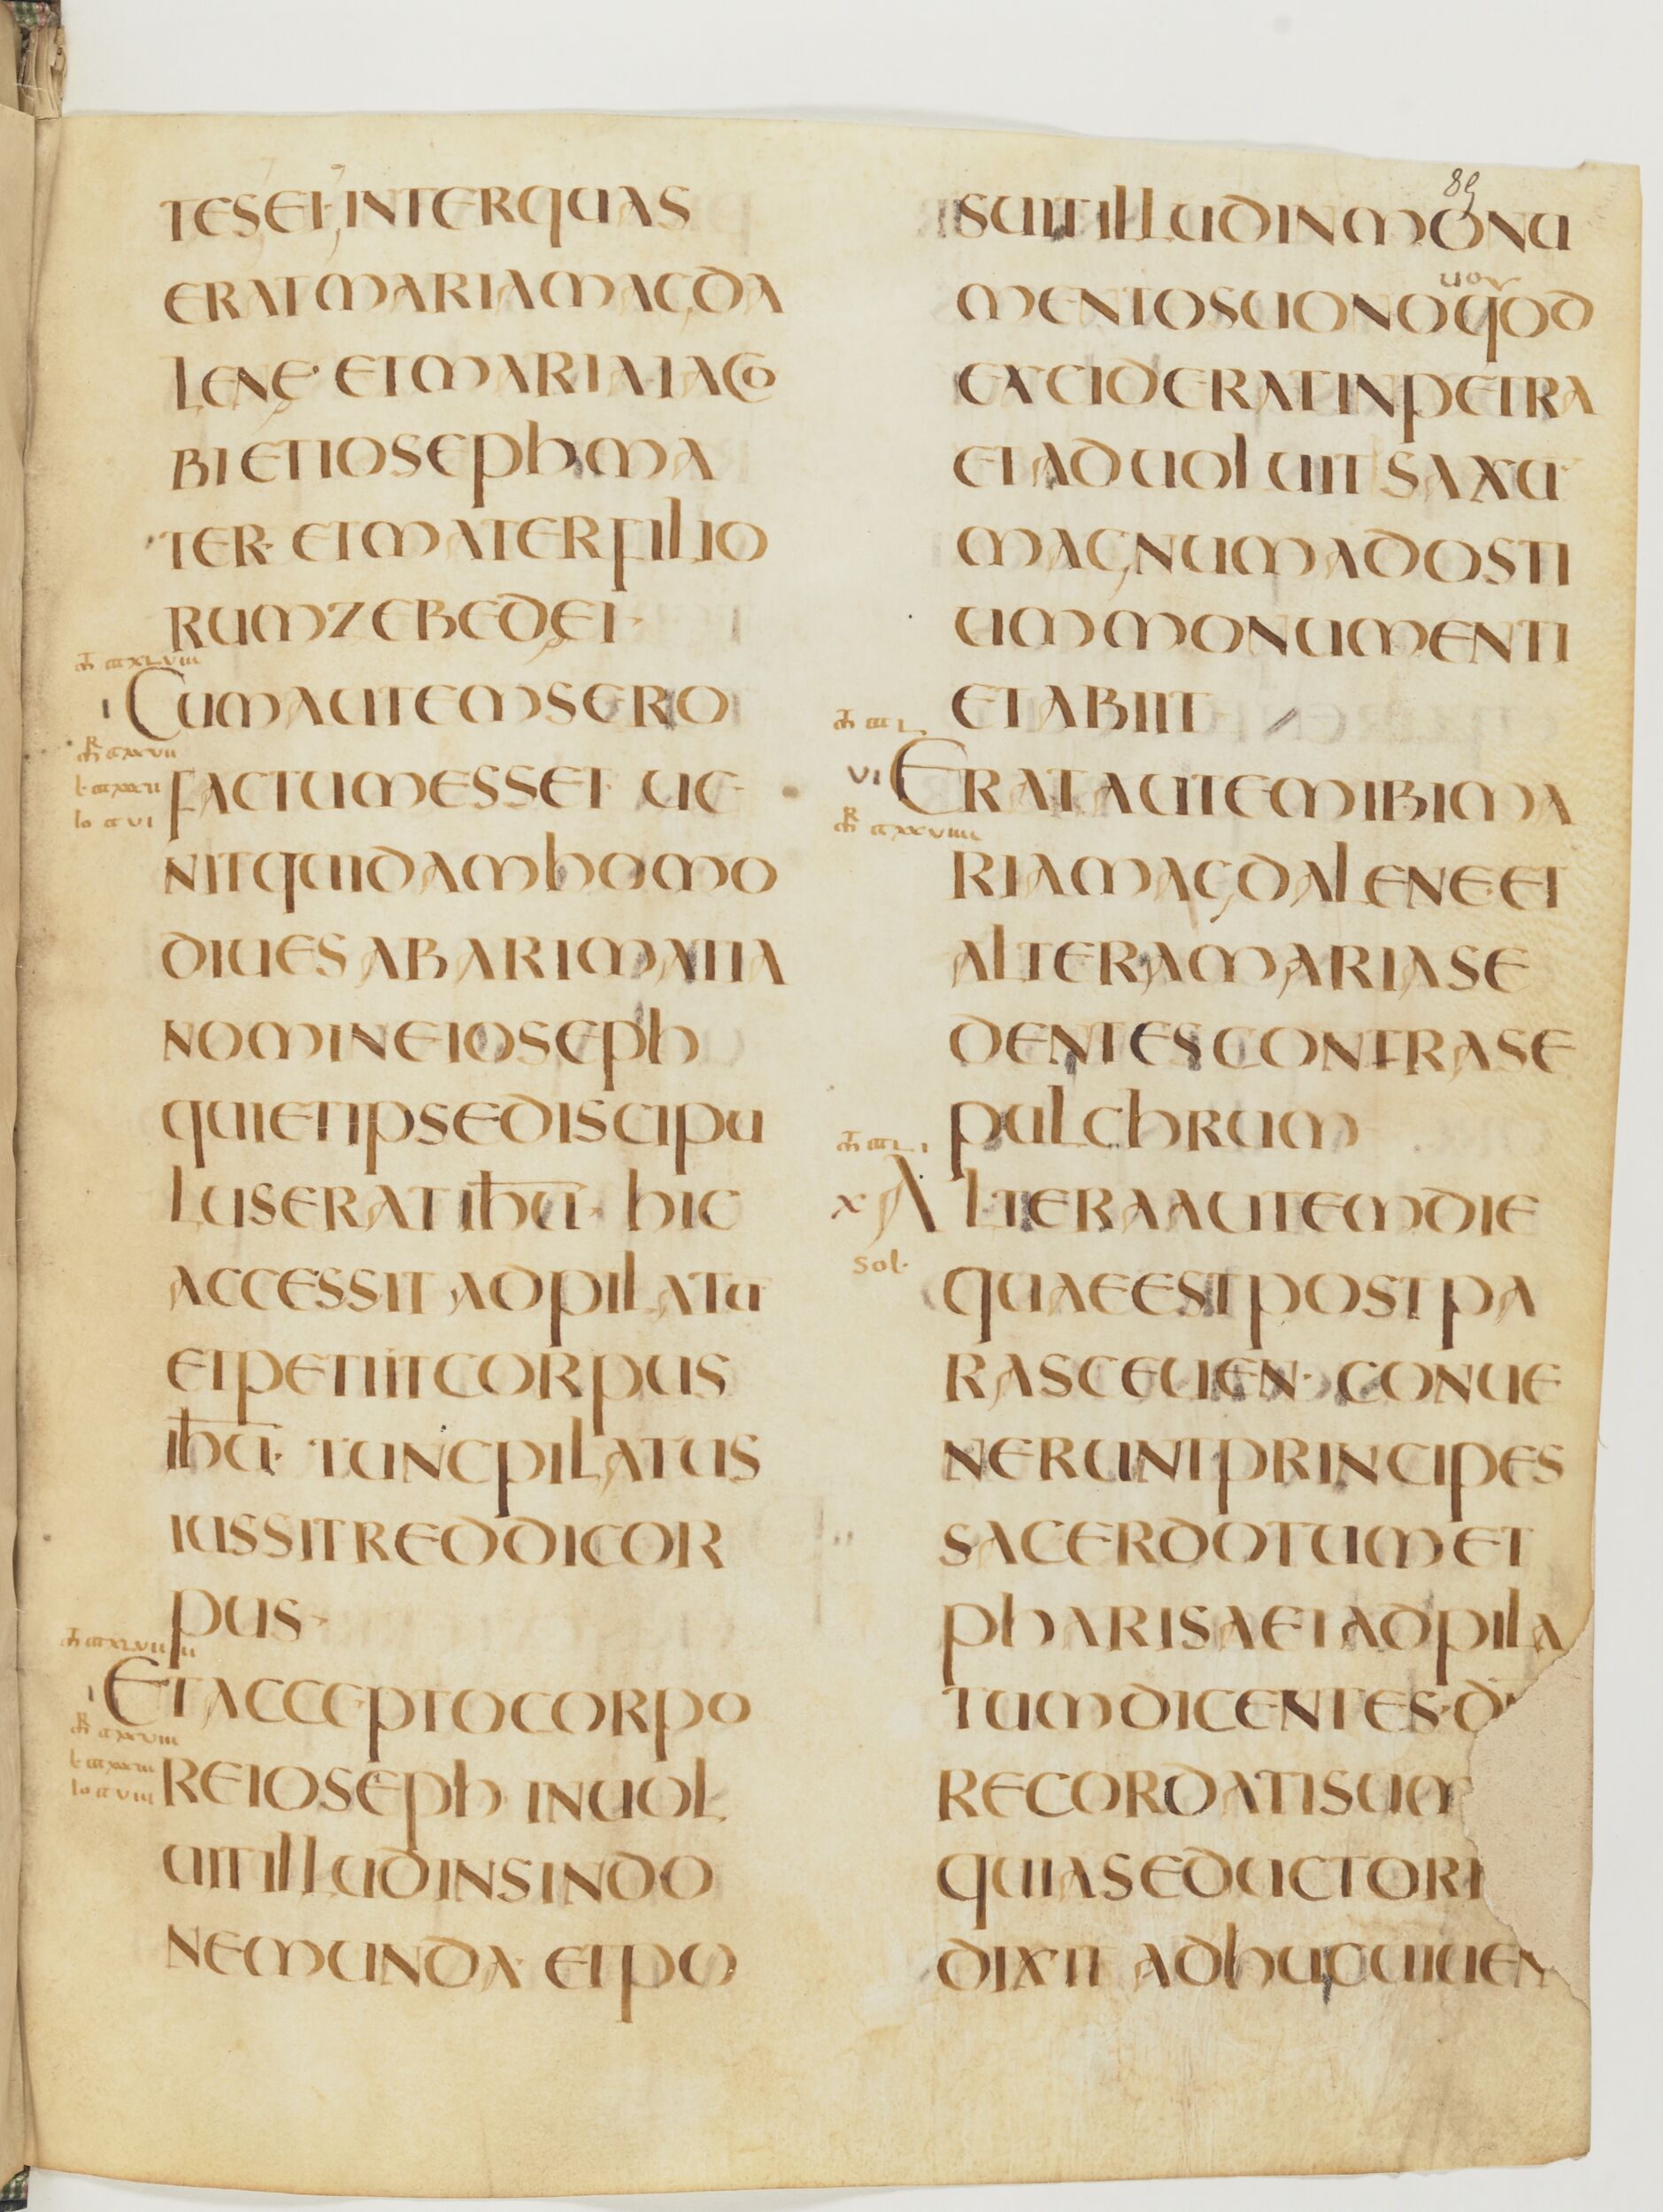 TESEI, INTERQUAS
ERATMARIAMAGDA
LENE· ETMARIAIACO
BIETIOSEPhMA
TER· ETMATERFILIO
RUMZEBEDEI·
I CUMAUTEMSERO
FACTUMESSET· UE
NITQUIDAMHOMO
DIUESABARIMATIA
NOMINEIOSEPh
QUIETIPSEDISCIPU
LUSERATIhū· hIC
ACCESSITADPILATū
ETPETIITCORPUS
Ihū· TUNCPILATUS
IUSSITREDDICOR
PUS·
I ETACCEPTOCORPO
REIOSEPh· INUOL
UITILLUDINSINDO
NEMUNDA· ETPO
89
SUITILLUDINMONU
MENTOSUONOQOD
EXCIDERATINPETRA
ETADUOLUITSAXū
MAGNUMADOSTI
UMMONUMENTI
ETABIIT
VI ERATAUTEMIBIMA
RIAMAGDALENE·ET
ALTERAMARIASE
DENTESCONTRASE
PULChRUM
X ALTERAAUTEMDIE
sol·
QUAEESTPOSTPA
RASCEUEN· CONUE
NERUNTPRINCIPES
SACERDOTUMET
PhARISAEIADPILA
TUMDICENTES·
RECORDATISUM
QUIASEDUCTORI
DIXIT ADhUCUIUEN